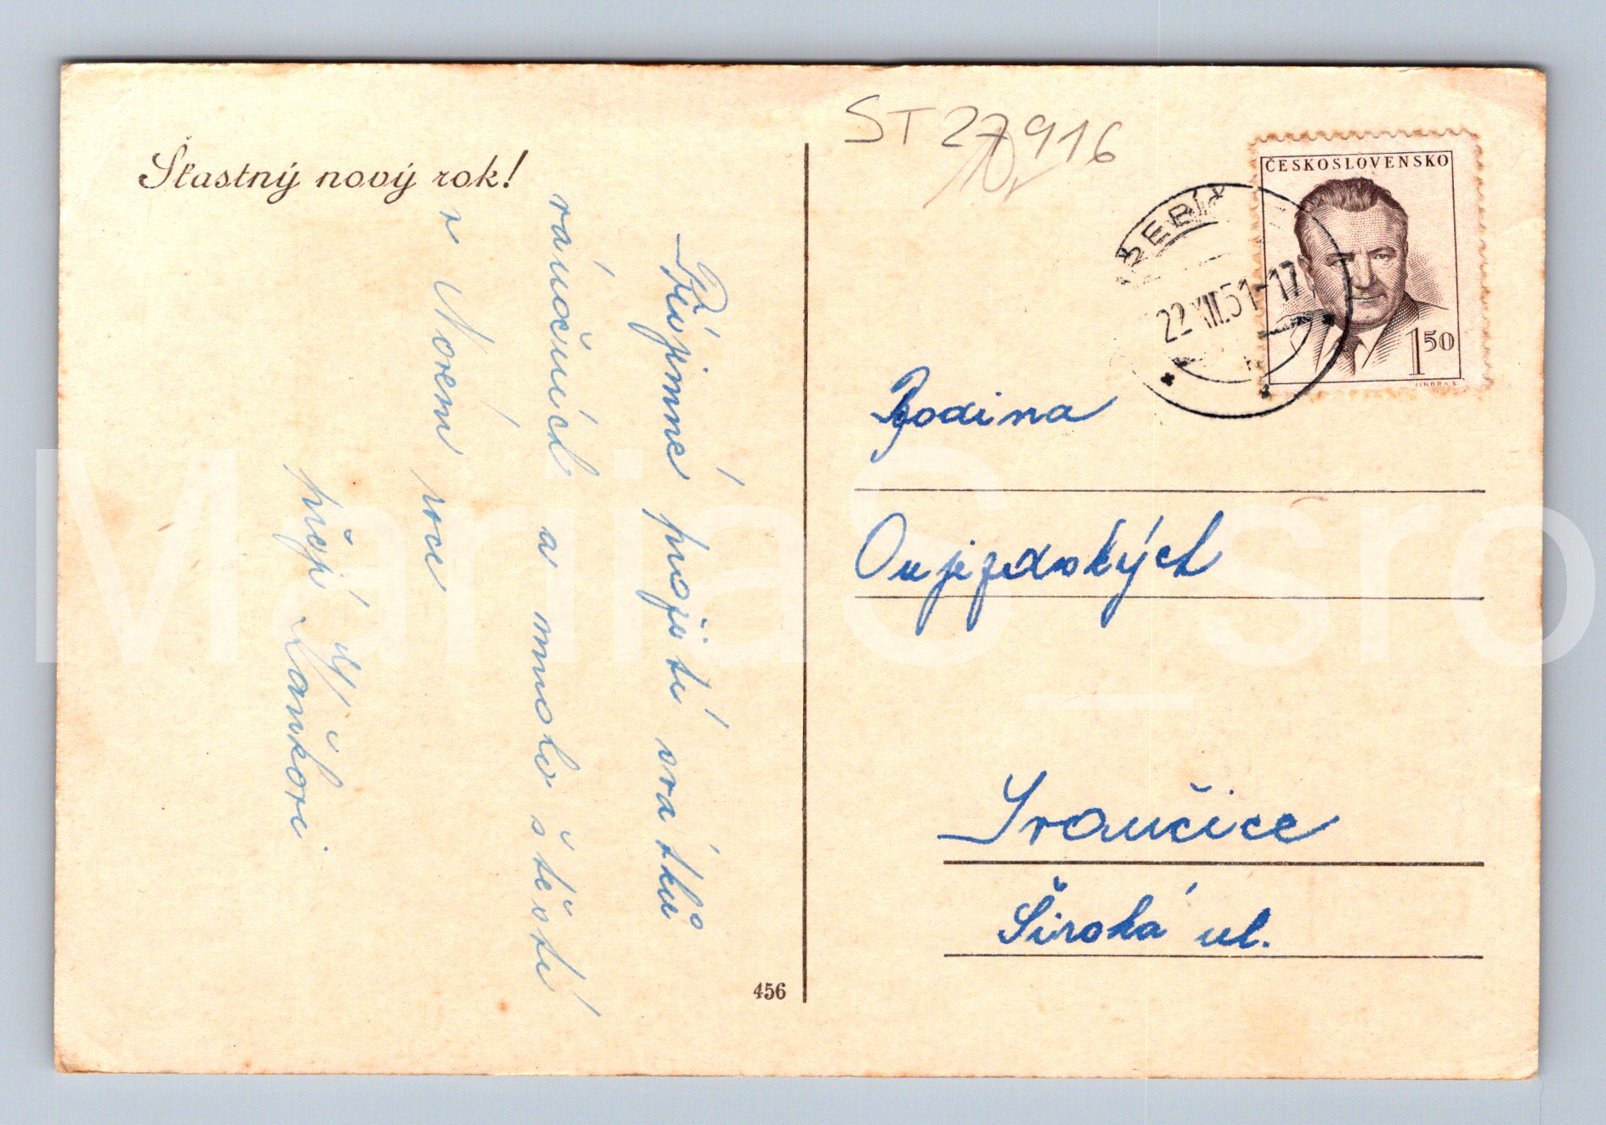 Šťastný nový rok!
Příjemné prožití svátků
vánočních a mnoho štěstí
v Novém roce
přejí
Vaňkovi
456
ST 27916
ČESKOSLOVENSKO
1 50
22.XII.51-17
Rodina
Oujezdských
Ivančice
Široká ul.
MariiaS_sro